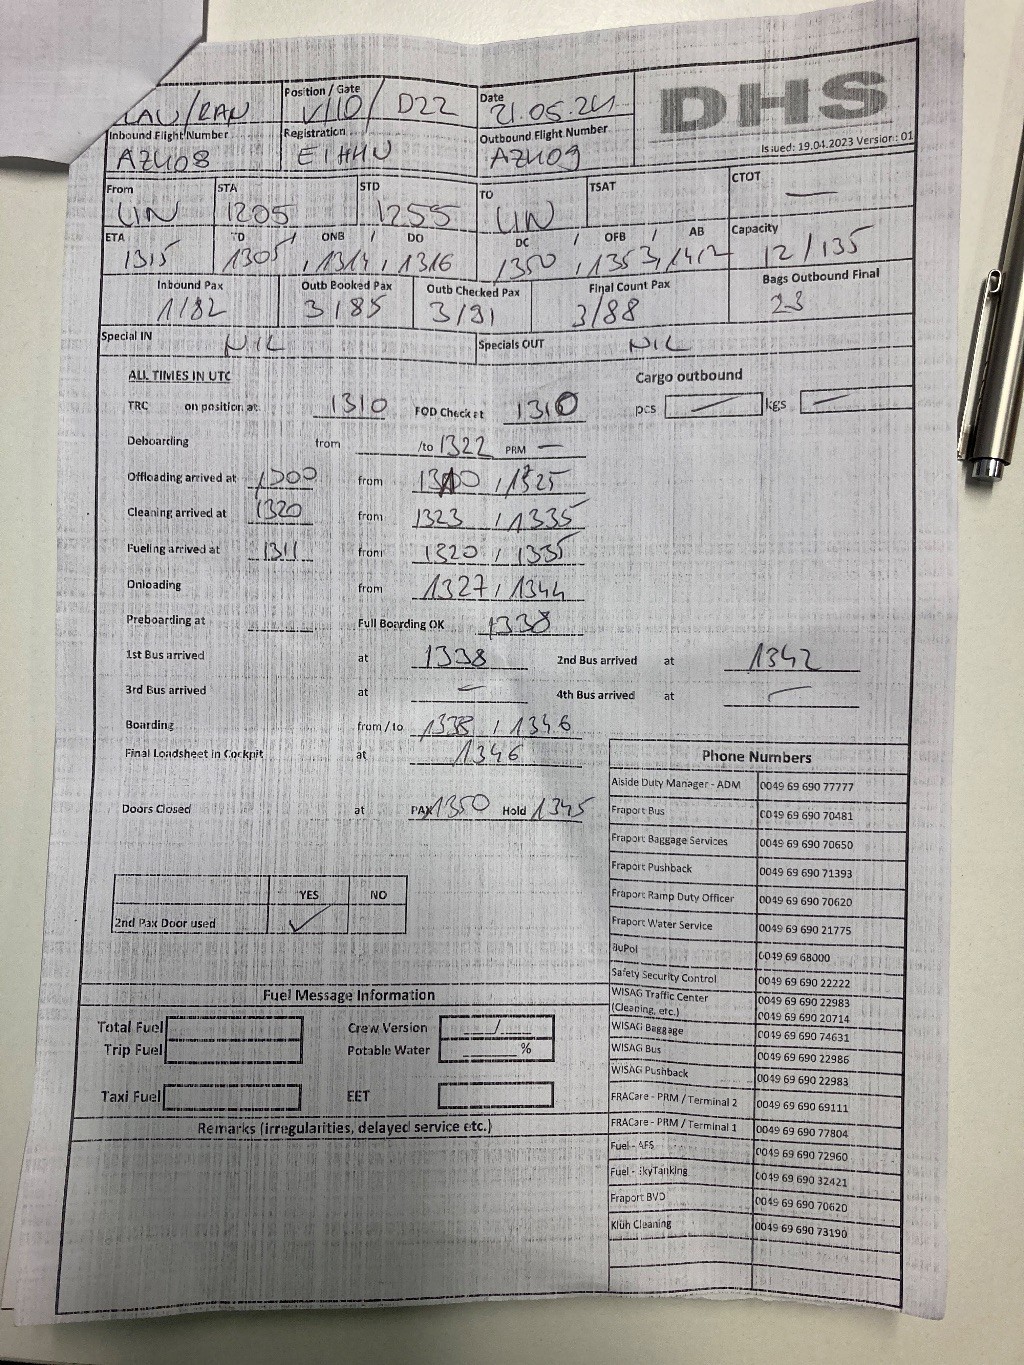 Position / Gate
V110 / D22
Date
21.05.24
DHS
Inbound Flight Number
AZ408
Registration
EIHHU
Outbound Flight Number
AZ409
Issued: 19.04.2023 Version: 01
From
LIN
STA
1205
STD
1255
TO
LIN
TSAT
CTOT
—
ETA
1315
TD / ONB / DO
1305, 1314, 1316
DC / OFB / AB
1350, 1353, 1412
Capacity
12/135
Inbound Pax
1/82
Outb Booked Pax
3/85
Outb Checked Pax
3/91
Final Count Pax
3/88
Bags Outbound Final
Special IN
NIL
Specials OUT
NIL
ALL TIMES IN UTC
Cargo outbound
TRC on position at 1310 FOD Check at 1310 pcs — kgs —
Deboarding from /to 1322 PRM —
Offloading arrived at 1300 from 1310 / 1325
Cleaning arrived at 1320 from 1323 / 1335
Fueling arrived at 1311 from 1320 / 1335
Onloading from 1327 / 1344
Preboarding at Full Boarding OK 1338
1st Bus arrived at 1338 2nd Bus arrived at 1342
3rd Bus arrived at — 4th Bus arrived at —
Boarding from / to 1338 / 1346
Final Loadsheet in Cockpit at 1346
Doors Closed at PAX 1350 Hold 1345
YES NO
2nd Pax Door used ✓
Fuel Message Information
Total Fuel Crew Version /
Trip Fuel Potable Water %
Taxi Fuel EET
Remarks (irregularities, delayed service etc.)
Phone Numbers
Aiside Duty Manager - ADM 0049 69 690 77777
Fraport Bus 0049 69 690 70481
Fraport Baggage Services 0049 69 690 70650
Fraport Pushback 0049 69 690 71393
Fraport Ramp Duty Officer 0049 69 690 70620
Fraport Water Service 0049 69 690 21775
BuPol 0049 69 68000
Safety Security Control 0049 69 690 22222
WISAG Traffic Center 0049 69 690 22983
(Cleaning, etc.) 0049 69 690 20714
WISAG Baggage 0049 69 690 74631
WISAG Bus 0049 69 690 22986
WISAG Pushback 0049 69 690 22983
FRACare - PRM / Terminal 2 0049 69 690 69111
FRACare - PRM / Terminal 1 0049 69 690 77804
Fuel - AFS 0049 69 690 72960
Fuel - SkyTanking 0049 69 690 32421
Fraport BVD 0049 69 690 70620
Klüh Cleaning 0049 69 690 73190